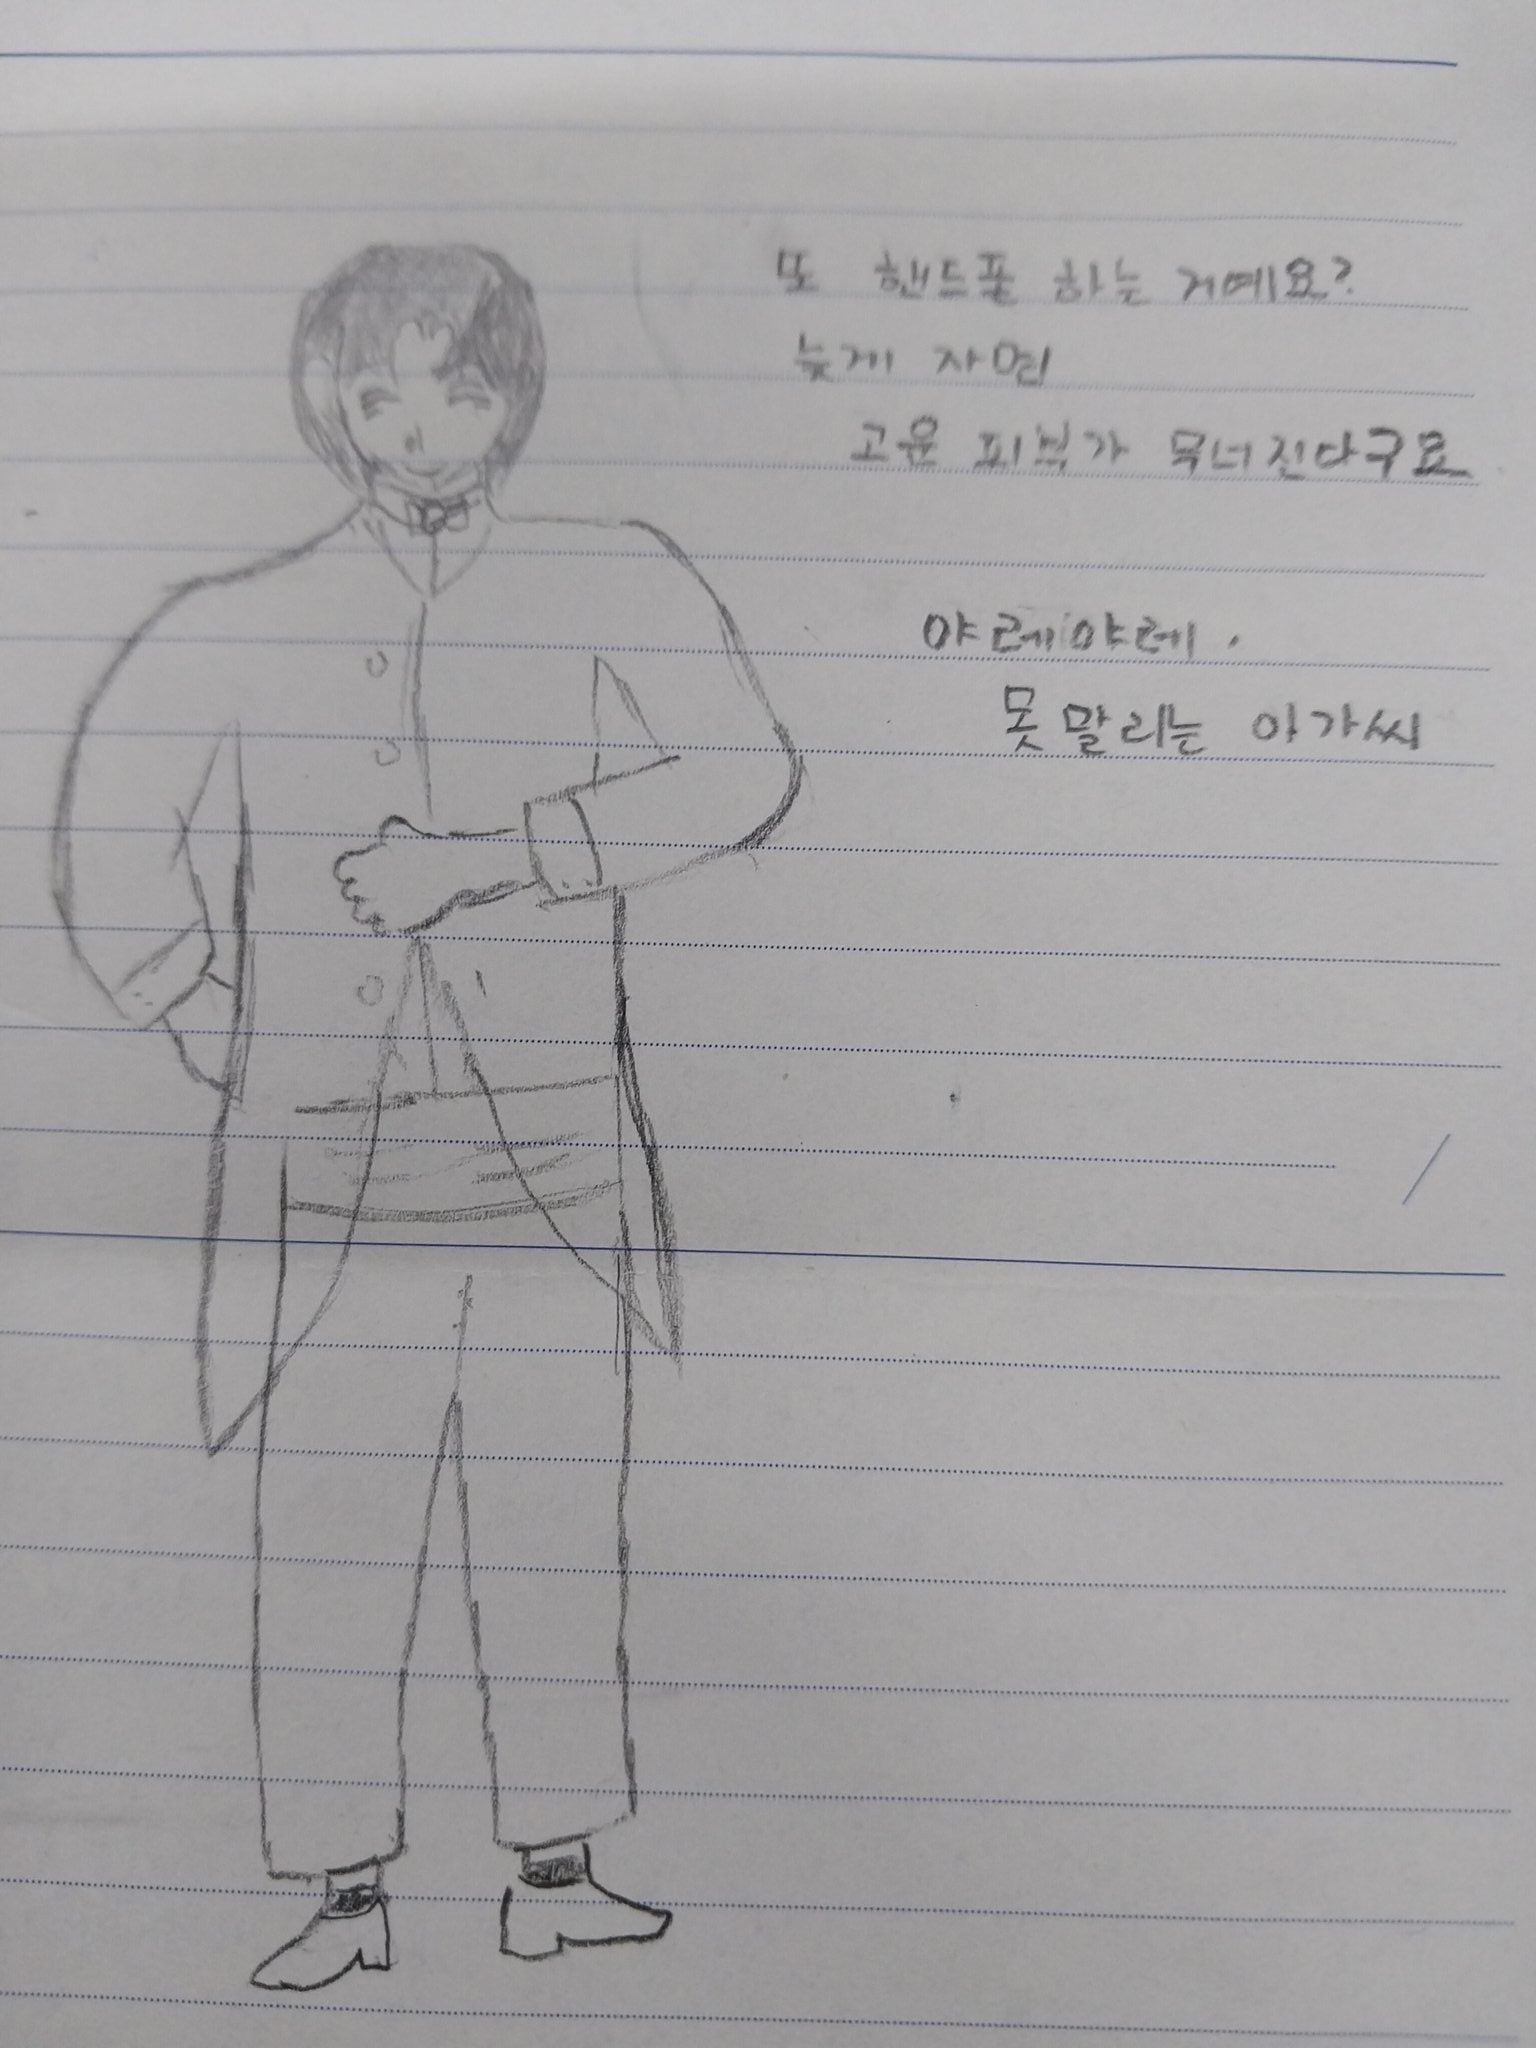 또 핸드폰 하는 거예요?
늦게 자면
고운 피부가 무너진다구요
야레야레.
못말리는 아가씨